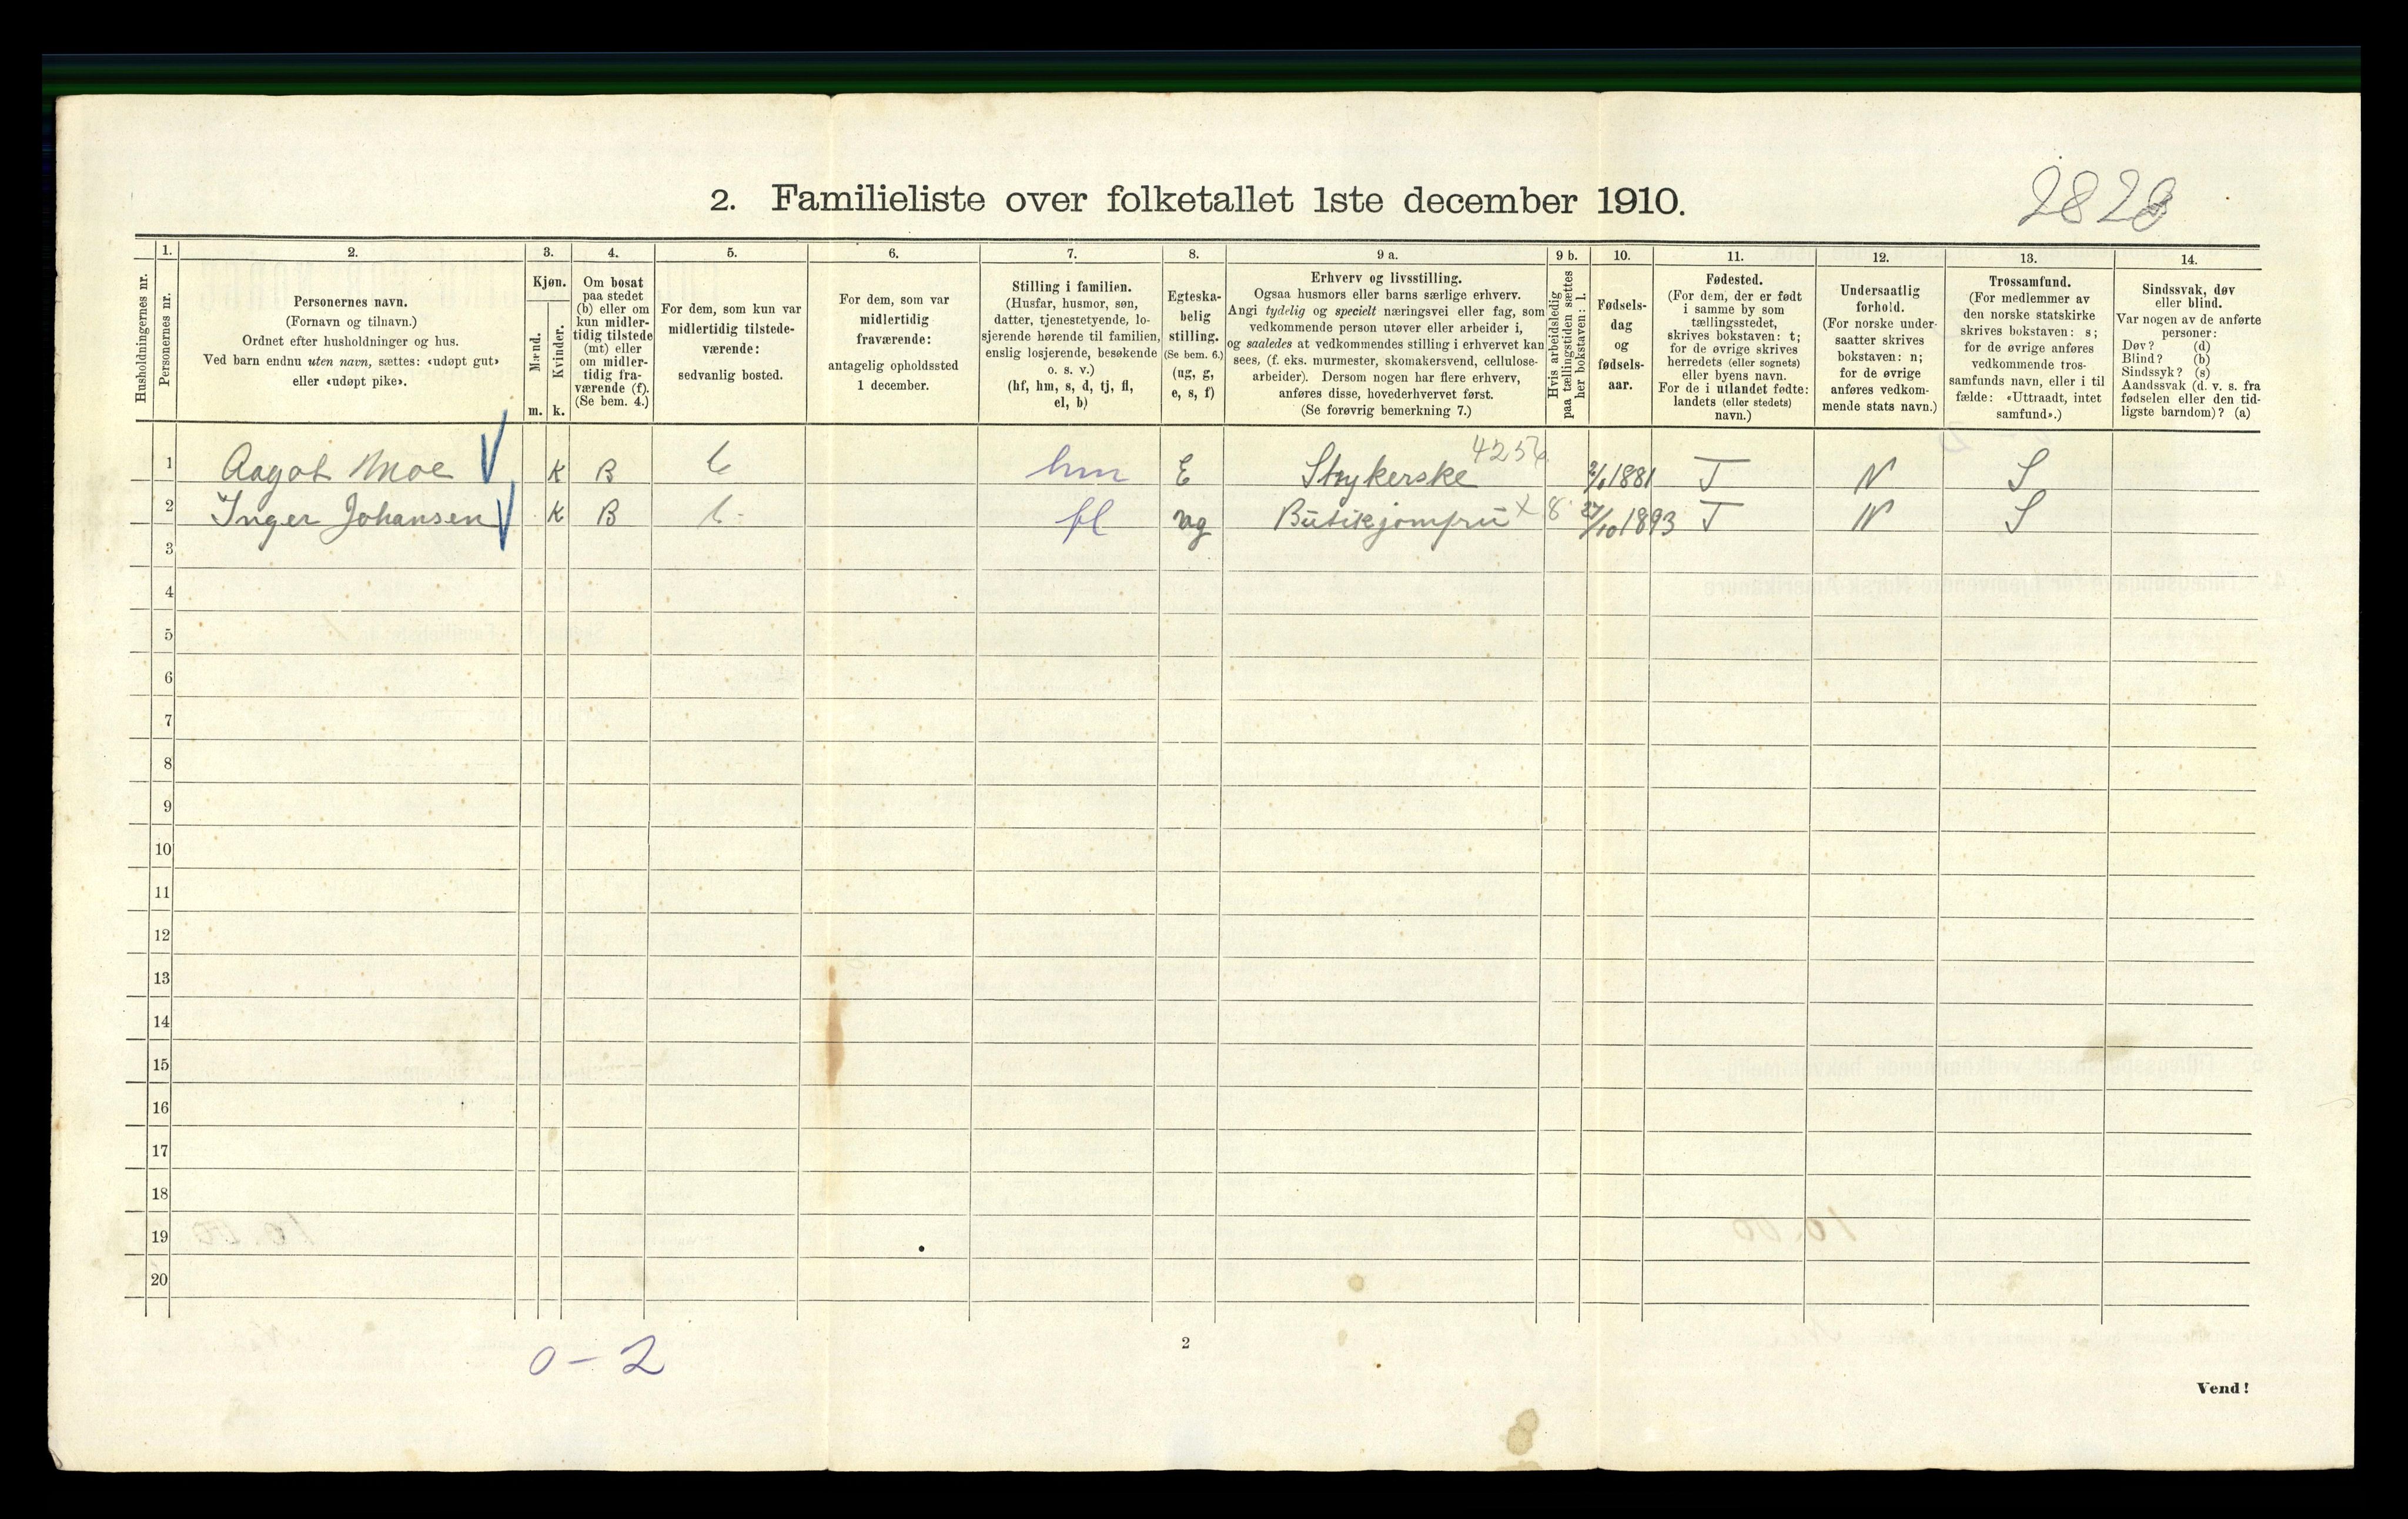 2. Familieliste over folketallet 1ste december 1910.
Husholdningernes nr.
1.
Personernes nr.
2.
Personernes navn.
(Fornavn og tilnavn.)
Ordnet efter husholdninger og hus.
Ved barn endnu uten navn, sættes: «udøpt gut»
eller «udøpt pike».
3.
Kjøn.
Mænd.
Kvinder.
m.
k.
4.
Om bosat
paa stedet
(b) eller om
kun midler-
tidig tilstede
(mt) eller
om midler-
tidig fra-
værende (f).
(Se bem. 4.)
5.
For dem, som kun var
midlertidig tilstede-
værende:
sedvanlig bosted.
6.
For dem, som var
midlertidig
fraværende:
antagelig opholdssted
1 december.
7.
Stilling i familien.
(Husfar, husmor, søn,
datter, tjenestetyende, lo-
sjerende hørende til familien,
enslig losjerende, besøkende
o. s. v.)
(hf, hm, s, d, tj, fl,
el, b)
8.
Egteska-
belig
stilling.
(Se bem. 6.)
(ug, g,
e, s, f)
9 a.
Erhverv og livsstilling.
Ogsaa husmors eller barns særlige erhverv.
Angi tydelig og specielt næringsvei eller fag, som
vedkommende person utøver eller arbeider i,
og saaledes at vedkommendes stilling i erhvervet kan
sees, (f. eks. murmester, skomakersvend, cellulose-
arbeider). Dersom nogen har flere erhverv,
anføres disse, hovederhvervet først.
(Se forøvrig bemerkning 7.)
9 b.
Hvis arbeidsledig
paa tællingstiden sættes
her bokstaven: l.
10.
Fødsels-
dag
og
fødsels-
aar.
11.
Fødested.
(For dem, der er født
i samme by som
tællingsstedet,
skrives bokstaven: t;
for de øvrige skrives
herredets (eller sognets)
eller byens navn.
For de i utlandet fødte:
landets (eller stedets)
navn.)
12.
Undersaatlig
forhold.
(For norske under-
saatter skrives
bokstaven: n;
for de øvrige
anføres vedkom-
mende stats navn.)
13.
Trossamfund.
(For medlemmer av
den norske statskirke
skrives bokstaven: s;
for de øvrige anføres
vedkommende tros-
samfunds navn, eller i til
fælde: «Uttraadt, intet
samfund».)
14.
Sindssvak, døv
eller blind.
Var nogen av de anførte
personer:
Døv? (d)
Blind? (b)
Sindssyk? (s)
Aandssvak (d. v. s. fra
fødselen eller den tid-
ligste barndom)? (a)
1 Aagot Moe K B hm E Strykerske 1881 T N S
2 Inger Johansen K B fl ug Butikjomfru x 8 27/10 1893 T N S
3
4
5
6
7
8
9
10
11
12
13
14
15
16
17
18
19
20
0 – 2
2
Vend!